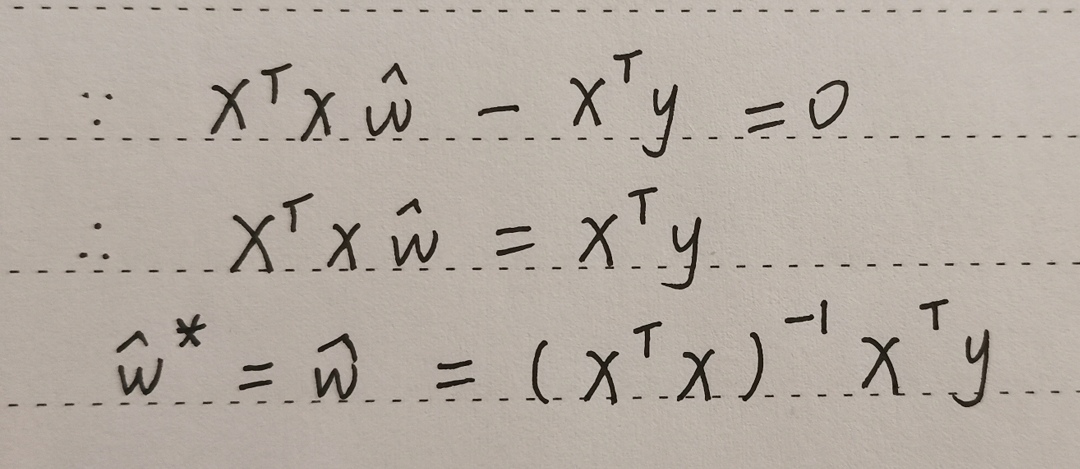 ∵ XᵀX ŵ − Xᵀy = 0
∴ XᵀX ŵ = Xᵀy
ŵ* = ŵ = (XᵀX)⁻¹ Xᵀy